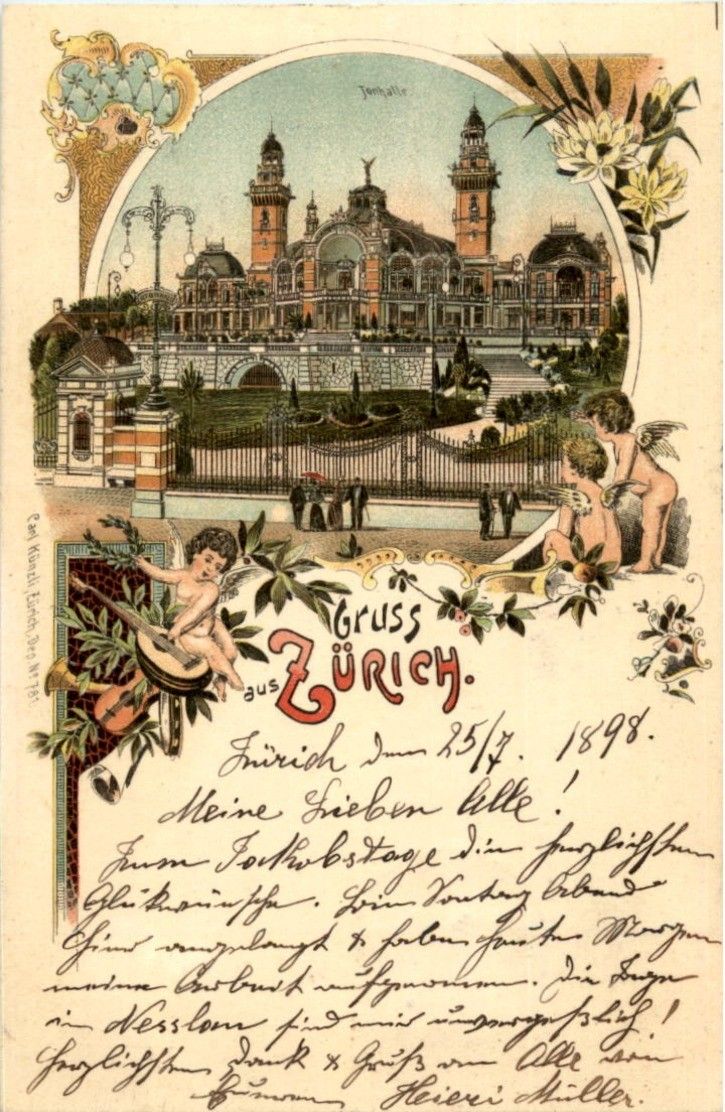 Tonhalle
Gruss
aus Zürich.
Carl Künzli, Zürich, Dep. No 781
Zürich den 25/7. 1898.
Meine Lieben Alle!
Zum Jakobstage die herzlichsten
Glükwünsche. Bin Sontag Abend
hier angelangt & habe heute Morgen
meine Arbeit aufgenommen. Die Tage
in Nesslau sind mir unvergeßlich!
Herzlichsten Dank & Gruß an Alle von
Heieri Müller.